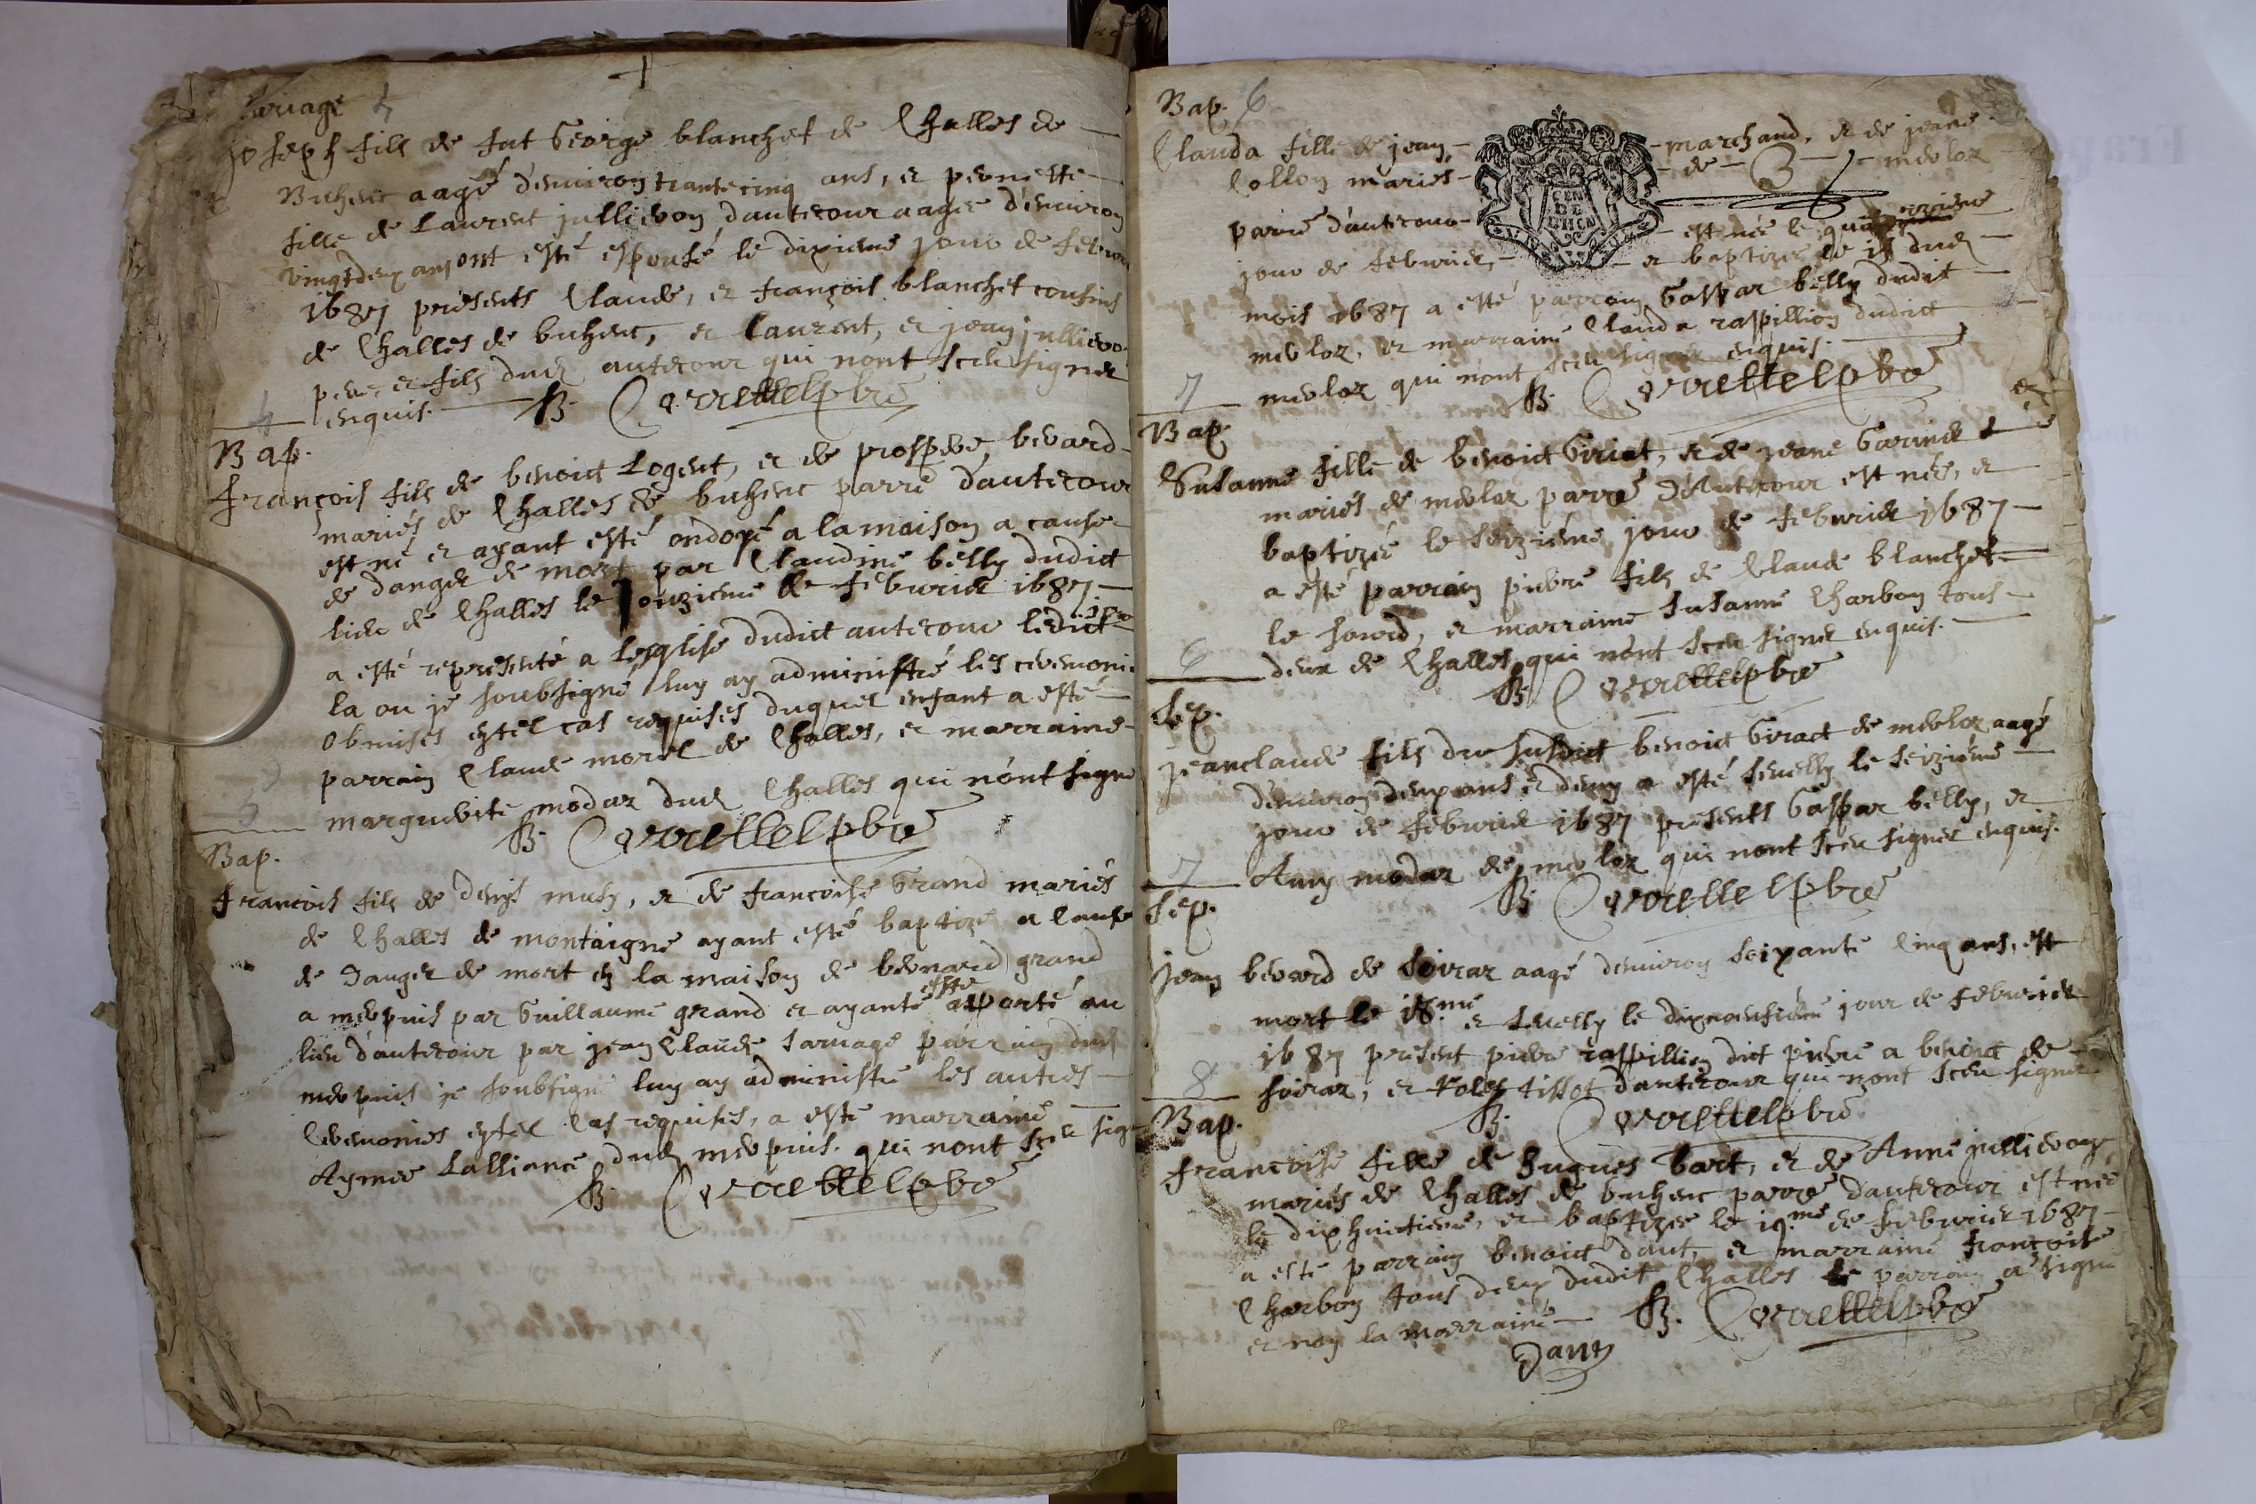 mariage
joseph fils de fut George blanchet de Challes de
Buhenc aagé d'environ trante cinq ans, et pernette
fille de Laurent jullieron dautecour aagée d'environ
vingtdeux ans ont esté espousé le dixieme jour de febvrier
1687 présents Claude, et françois blanchet cousins
de Challes de buhenc, et laurent, et jean jullieron
pere, et fils dud autecour qui n'ont sceu signer
enquis. B. Cverettelpbre
5
Bap.
françois fils de benoict Logent, et de prospere, berard
mariés de Challes de buhenc parre d'autecour
est né et ayant esté ondoyé a la maison a cause
de danger de mort par Claudine belly dudict
lieu de Challes le onzieme de febvrier 1687
a esté representé a leglise dudict autecour ledict jour
la ou je soubsigné luy ay administré les ceremonies
obmises en tel cas requises duquel enfant a esté
parrain Claude morel de Challes, et marraine
marguerite modaz dud Challes qui n'ont signé
B. Cverettelpbre
Bap.
françois fils de denys musy, et de françoise Grand mariés
de Challes de montaigne ayant esté baptizé a cause
de danger de mort en la maison de bernard grand
a merpuis par Guillaume grand et ayante esté apporté au
lieu d'autecour par jean Claude sarvage parrain dud
merpuis je soubsigné luy ay administré les autres
Ceremonies en tel Cas requises, a esté marraine
Aymée Lalliance dud merpuis. qui n'ont sceu signer
B. Cverettelpbre
Bap. 6
Clauda fille de jean marchand, et de jeane
Collon mariés de merloz
parre d'autecour est née le
jour de febvrier, et baptizée le 15 dud
mois 1687 a esté parrain Gaspar belly dudit
merloz, et marraine Clauda raspillion dudict
merloz qui n'ont sceu signer enquis.
B. Cverettelpbre
7
Bap.
Susanne fille de benoict Giriat, et de jeane Garinet
mariés de merloz parre d'Autecour est née, et
baptizée le seizieme jour de febvrier 1687
a esté parrain pierre fils de Claude blanchet
le sourd, et marraine susanne Charbon tous
deux de Challes qui n'ont sceu signer enquis.
B. Cverettelpbre
6
Sep.
jeanclaude fils du susdict benoict Giract de merloz aagé
d'environ deux ans et demy a esté sevelly le seizieme
jour de febvrier 1687 présents Gaspar belly, et
Anny modaz de merloz qui n'ont sceu signer enquis.
B. Cverettelpbre
7
Sep.
jean berard de soiraz aagé d'environ soixante Cinq ans, est
mort le 18.me et sevelly le dixneufvieme jour de febvrier
1687 présent pierre raspillion dict pierre a benoict de
soiraz, et Colas tissot d'autecour qui n'ont sceu signer
B. Cverettelpbre
8
Bap.
françoise fille de hugues bart, et de Anne jullieron
mariés de Challes de buhenc parre d'autecour est née
le dixhuictieme, et baptizée le 19.me de febvrier 1687
a esté parrain benoict dant, et marraine françoise
Charbon tous deux dudit Challes le parrain a signé
et non la marraine B. Cverettelpbre
Dant